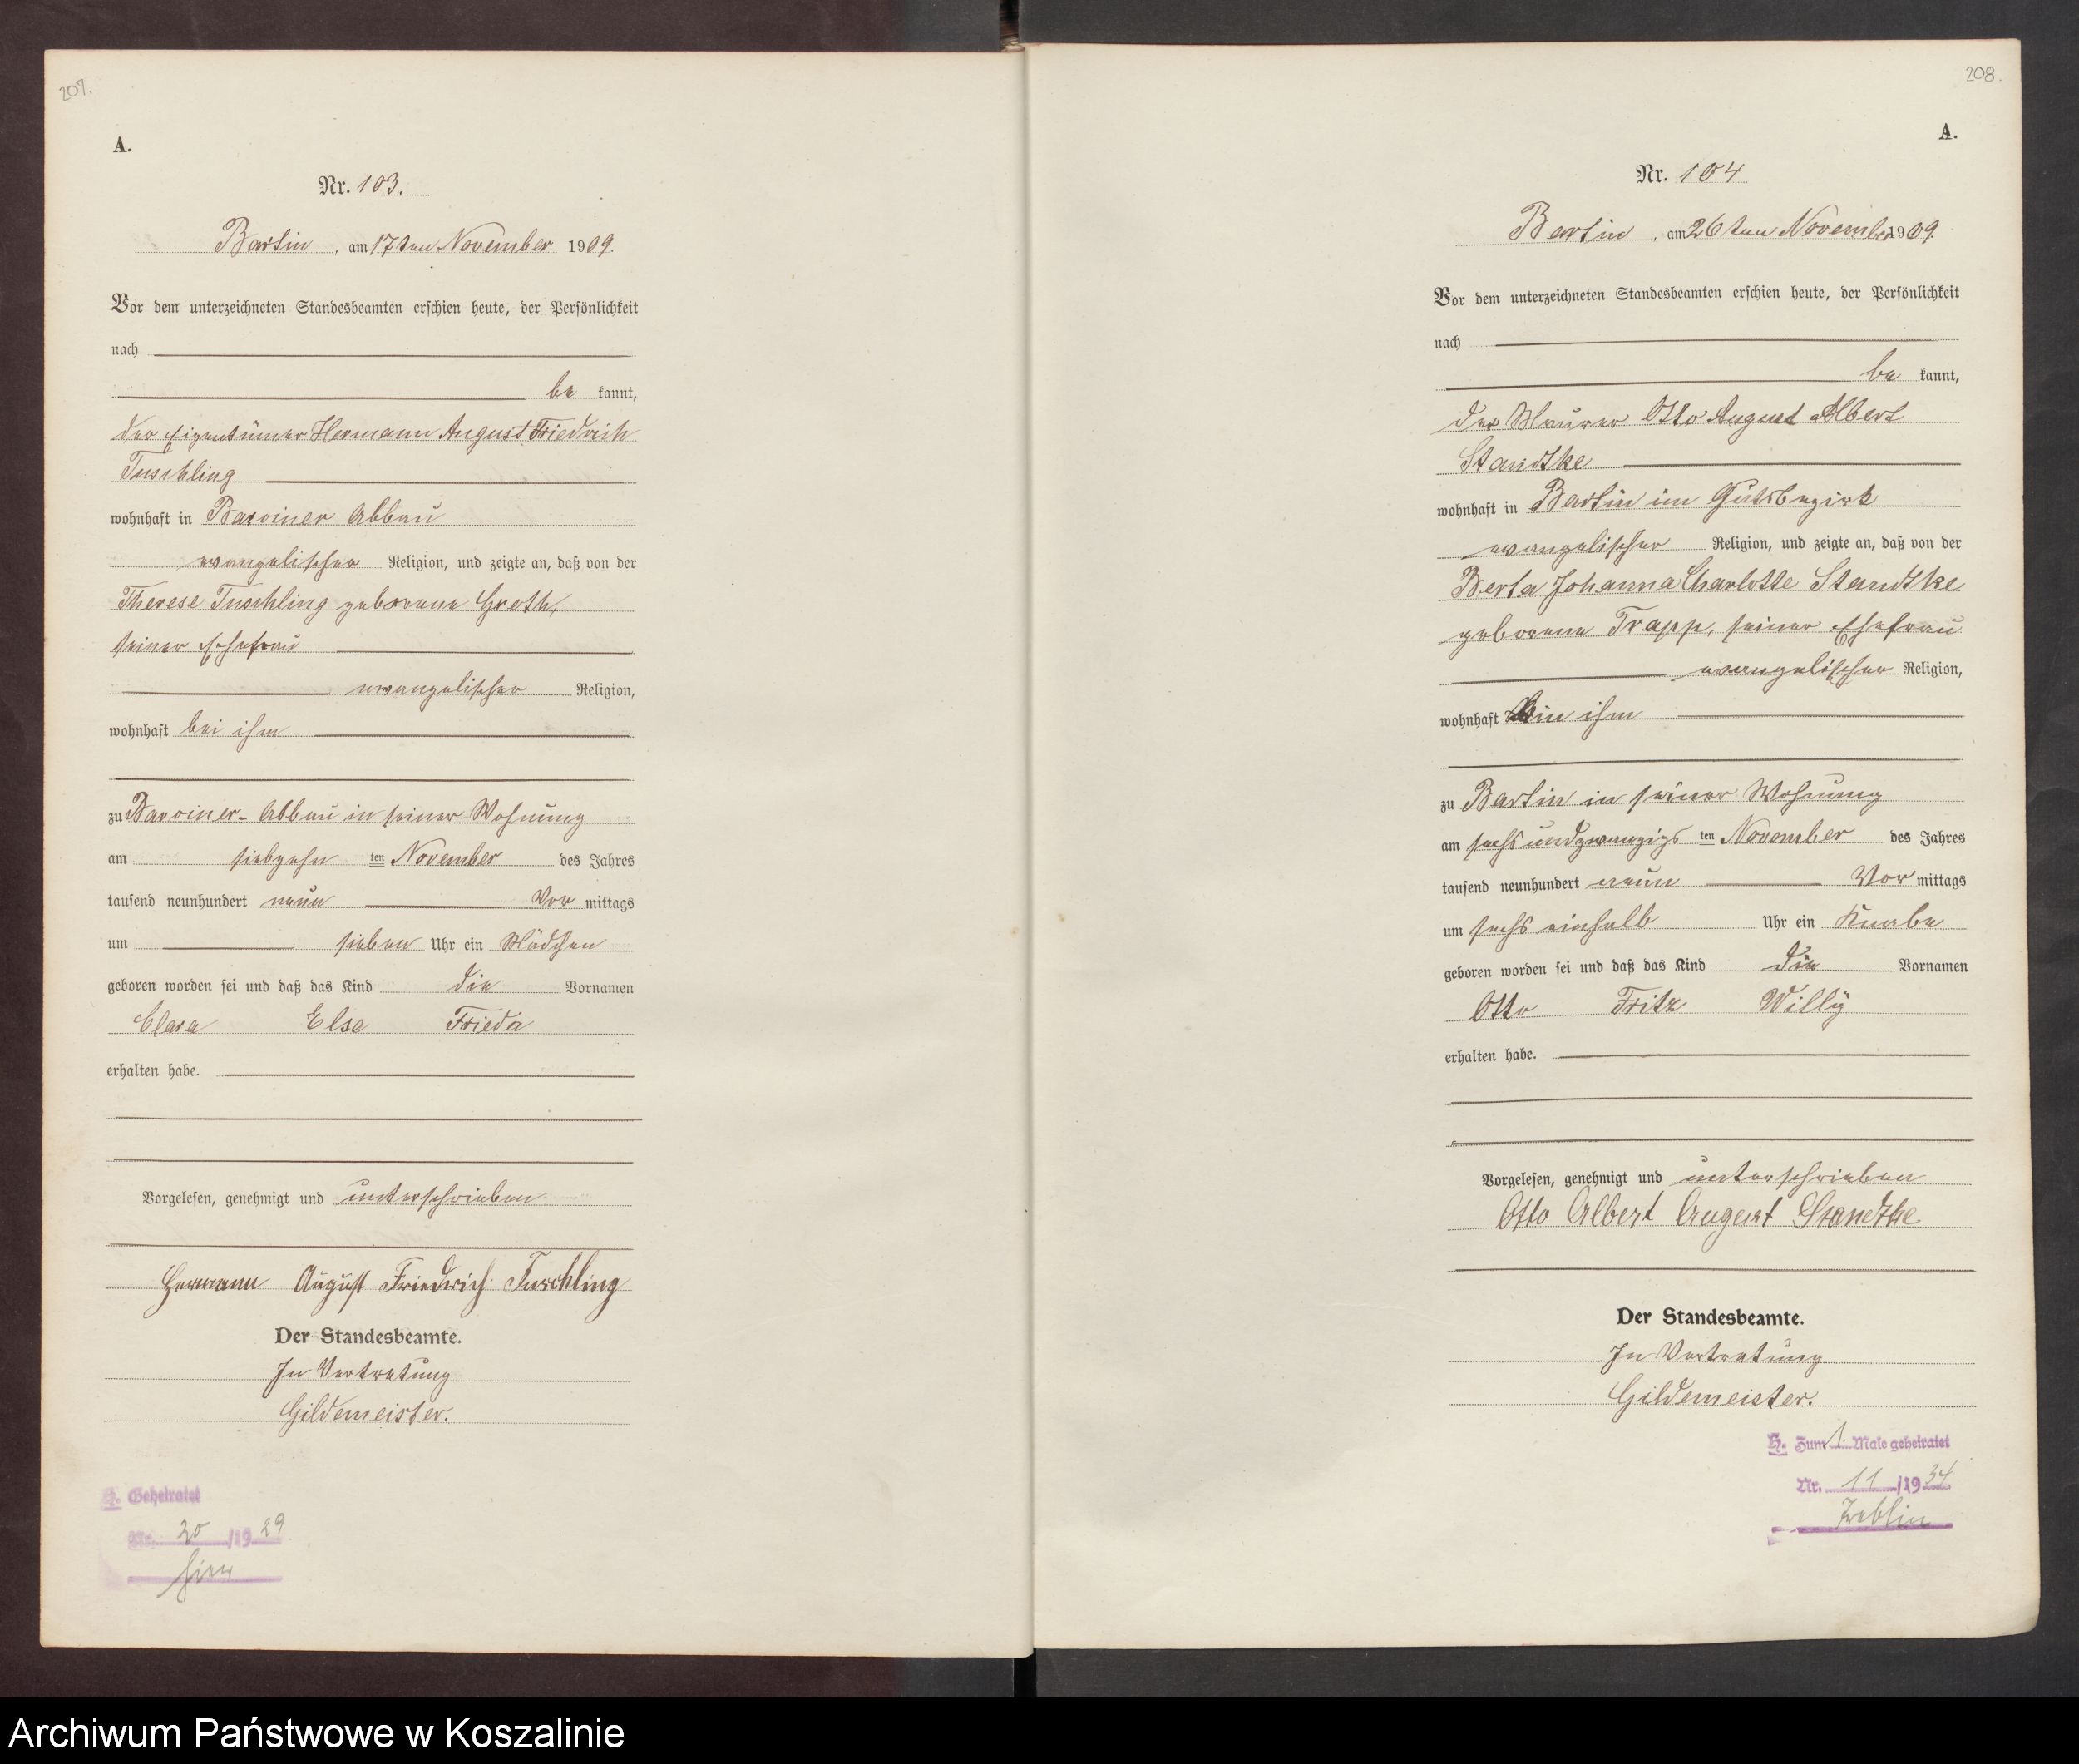 207.
A.
Nr. 103.
Bartin, am 17ten November 1909.
Vor dem unterzeichneten Standesbeamten erschien heute, der Persönlichkeit
nach
be kannt,
der Eigentümer Hermann August Friedrich
Tuschling
wohnhaft in Barviner Abbau
evangelischer Religion, und zeigte an, daß von der
Therese Tuschling geborene Groth,
seiner Ehefrau
evangelischer Religion,
wohnhaft bei ihm
zu Barviner-Abbau in seiner Wohnung
am siebzehn ten November des Jahres
tausend neunhundert neun Vor mittags
um sieben Uhr ein Mädchen
geboren worden sei und daß das Kind die Vornamen
Clara Else Frieda
erhalten habe.
Vorgelesen, genehmigt und unterschrieben
Hermann August Friedrich Tuschling
Der Standesbeamte.
In Vertretung
Gildemeister.
H. Geheiratet
Nr. 20 /1929
hier
208.
A.
Nr. 104
Bartin, am 26ten November 1909.
Vor dem unterzeichneten Standesbeamten erschien heute, der Persönlichkeit
nach
be kannt,
der Maurer Otto August Albert
Standtke
wohnhaft in Bartin im Gutsbezirk
evangelischer Religion, und zeigte an, daß von der
Berta Johanna Charlotte Standtke
geborene Trapp, seiner Ehefrau
evangelischer Religion,
wohnhaft bei ihm
zu Bartin in seiner Wohnung
am sechsundzwanzigs ten November des Jahres
tausend neunhundert neun Vor mittags
um sechs einhalb Uhr ein Knabe
geboren worden sei und daß das Kind die Vornamen
Otto Fritz Willy
erhalten habe.
Vorgelesen, genehmigt und unterschrieben
Otto Albert August Standtke
Der Standesbeamte.
In Vertretung
Gildemeister.
H. Zum 1. Male geheiratet
Nr. 11 /1934
Treblin
Archiwum Państwowe w Koszalinie